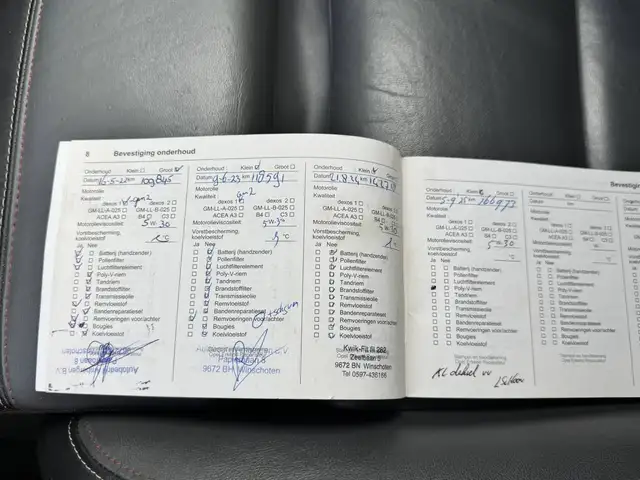 8 Bevestiging onderhoud
Onderhoud Klein Groot
Datum 16-5-22 km 109845
Motorolie
Kwaliteit
dexos 1 dexos 2
GM-LL-A-025 GM-LL-B-025
ACEA A3 B4 C3
Motorolieviscositeit 5W-30
Vorstbescherming,
koelvloeistof °C
Ja Nee
Batterij (handzender)
Pollenfilter
Luchtfilterelement
Poly-V-riem
Tandriem
Brandstoffilter
Transmissieolie
Remvloeistof
Bandenreparatieset
Remvoeringen voor/achter
Bougies
Koelvloeistof
Onderhoud Klein Groot
Datum 9-6-23 km 117591
Motorolie
Kwaliteit gm2
dexos 1 dexos 2
GM-LL-A-025 GM-LL-B-025
ACEA A3 B4 C3
Motorolieviscositeit 5W-30
Vorstbescherming,
koelvloeistof °C
Ja Nee
Batterij (handzender)
Pollenfilter
Luchtfilterelement
Poly-V-riem
Tandriem
Brandstoffilter
Transmissieolie
Remvloeistof
Bandenreparatieset
Remvoeringen voor/achter
Bougies
Koelvloeistof
9672 BH Winschoten
Onderhoud Klein Groot
Datum km
Motorolie
Kwaliteit
dexos 1 dexos 2
GM-LL-A-025 GM-LL-B-025
ACEA A3 B4 C3
Motorolieviscositeit 5W30
Vorstbescherming,
koelvloeistof °C
Ja Nee
Batterij (handzender)
Pollenfilter
Luchtfilterelement
Poly-V-riem
Tandriem
Brandstoffilter
Transmissieolie
Remvloeistof
Bandenreparatieset
Remvoeringen voor/achter
Bougies
Koelvloeistof
Kwik-Fit III 282
Zeefbaan 5
9672 BN Winschoten
Tel 0597-430166
Onderhoud Klein Groot
Datum 5-9-25 km 166977
Motorolie
Kwaliteit
dexos 1 dexos 2
GM-LL-A-025 GM-LL-B-025
ACEA A3 B4 C3
Motorolieviscositeit 5-30
Vorstbescherming,
koelvloeistof °C
Ja Nee
Batterij (handzender)
Pollenfilter
Luchtfilterelement
Poly-V-riem
Tandriem
Brandstoffilter
Transmissieolie
Remvloeistof
Bandenreparatieset
Remvoeringen voor/achter
Bougies
Koelvloeistof
Onderhoud
Datum km
Motorolie
Kwaliteit
GM-LL-A-025
ACEA A3
Motorolieviscositeit
Vorstbescherming,
koelvloeistof
Ja Nee
Batterij (handzender)
Pollenfilter
Luchtfilterelement
Poly-V-riem
Tandriem
Brandstoffilter
Transmissieolie
Remvloeistof
Bandenreparatieset
Remvoeringen voor/achter
Bougies
Koelvloeistof